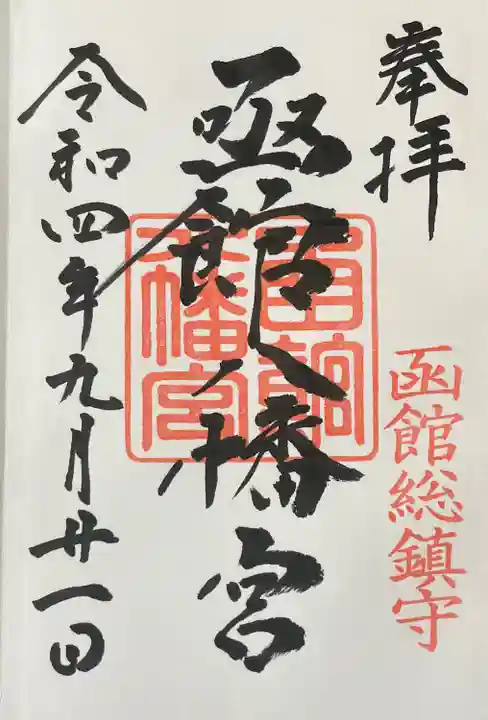 奉拝
函館総鎮守
函館八幡宮
函館
八幡宮
令和四年九月廿一日